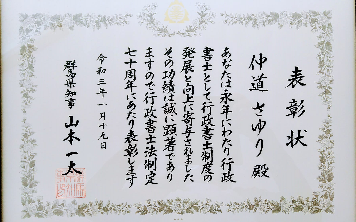 表彰状
仲道 さゆり 殿
あなたは永年にわたり行政
書士として行政書士制度の
発展と向上に寄与されました
その功績は誠に顕著であり
ますので行政書士法制定
七十周年にあたり表彰します
令和三年一月十九日
群馬県知事 山本一太